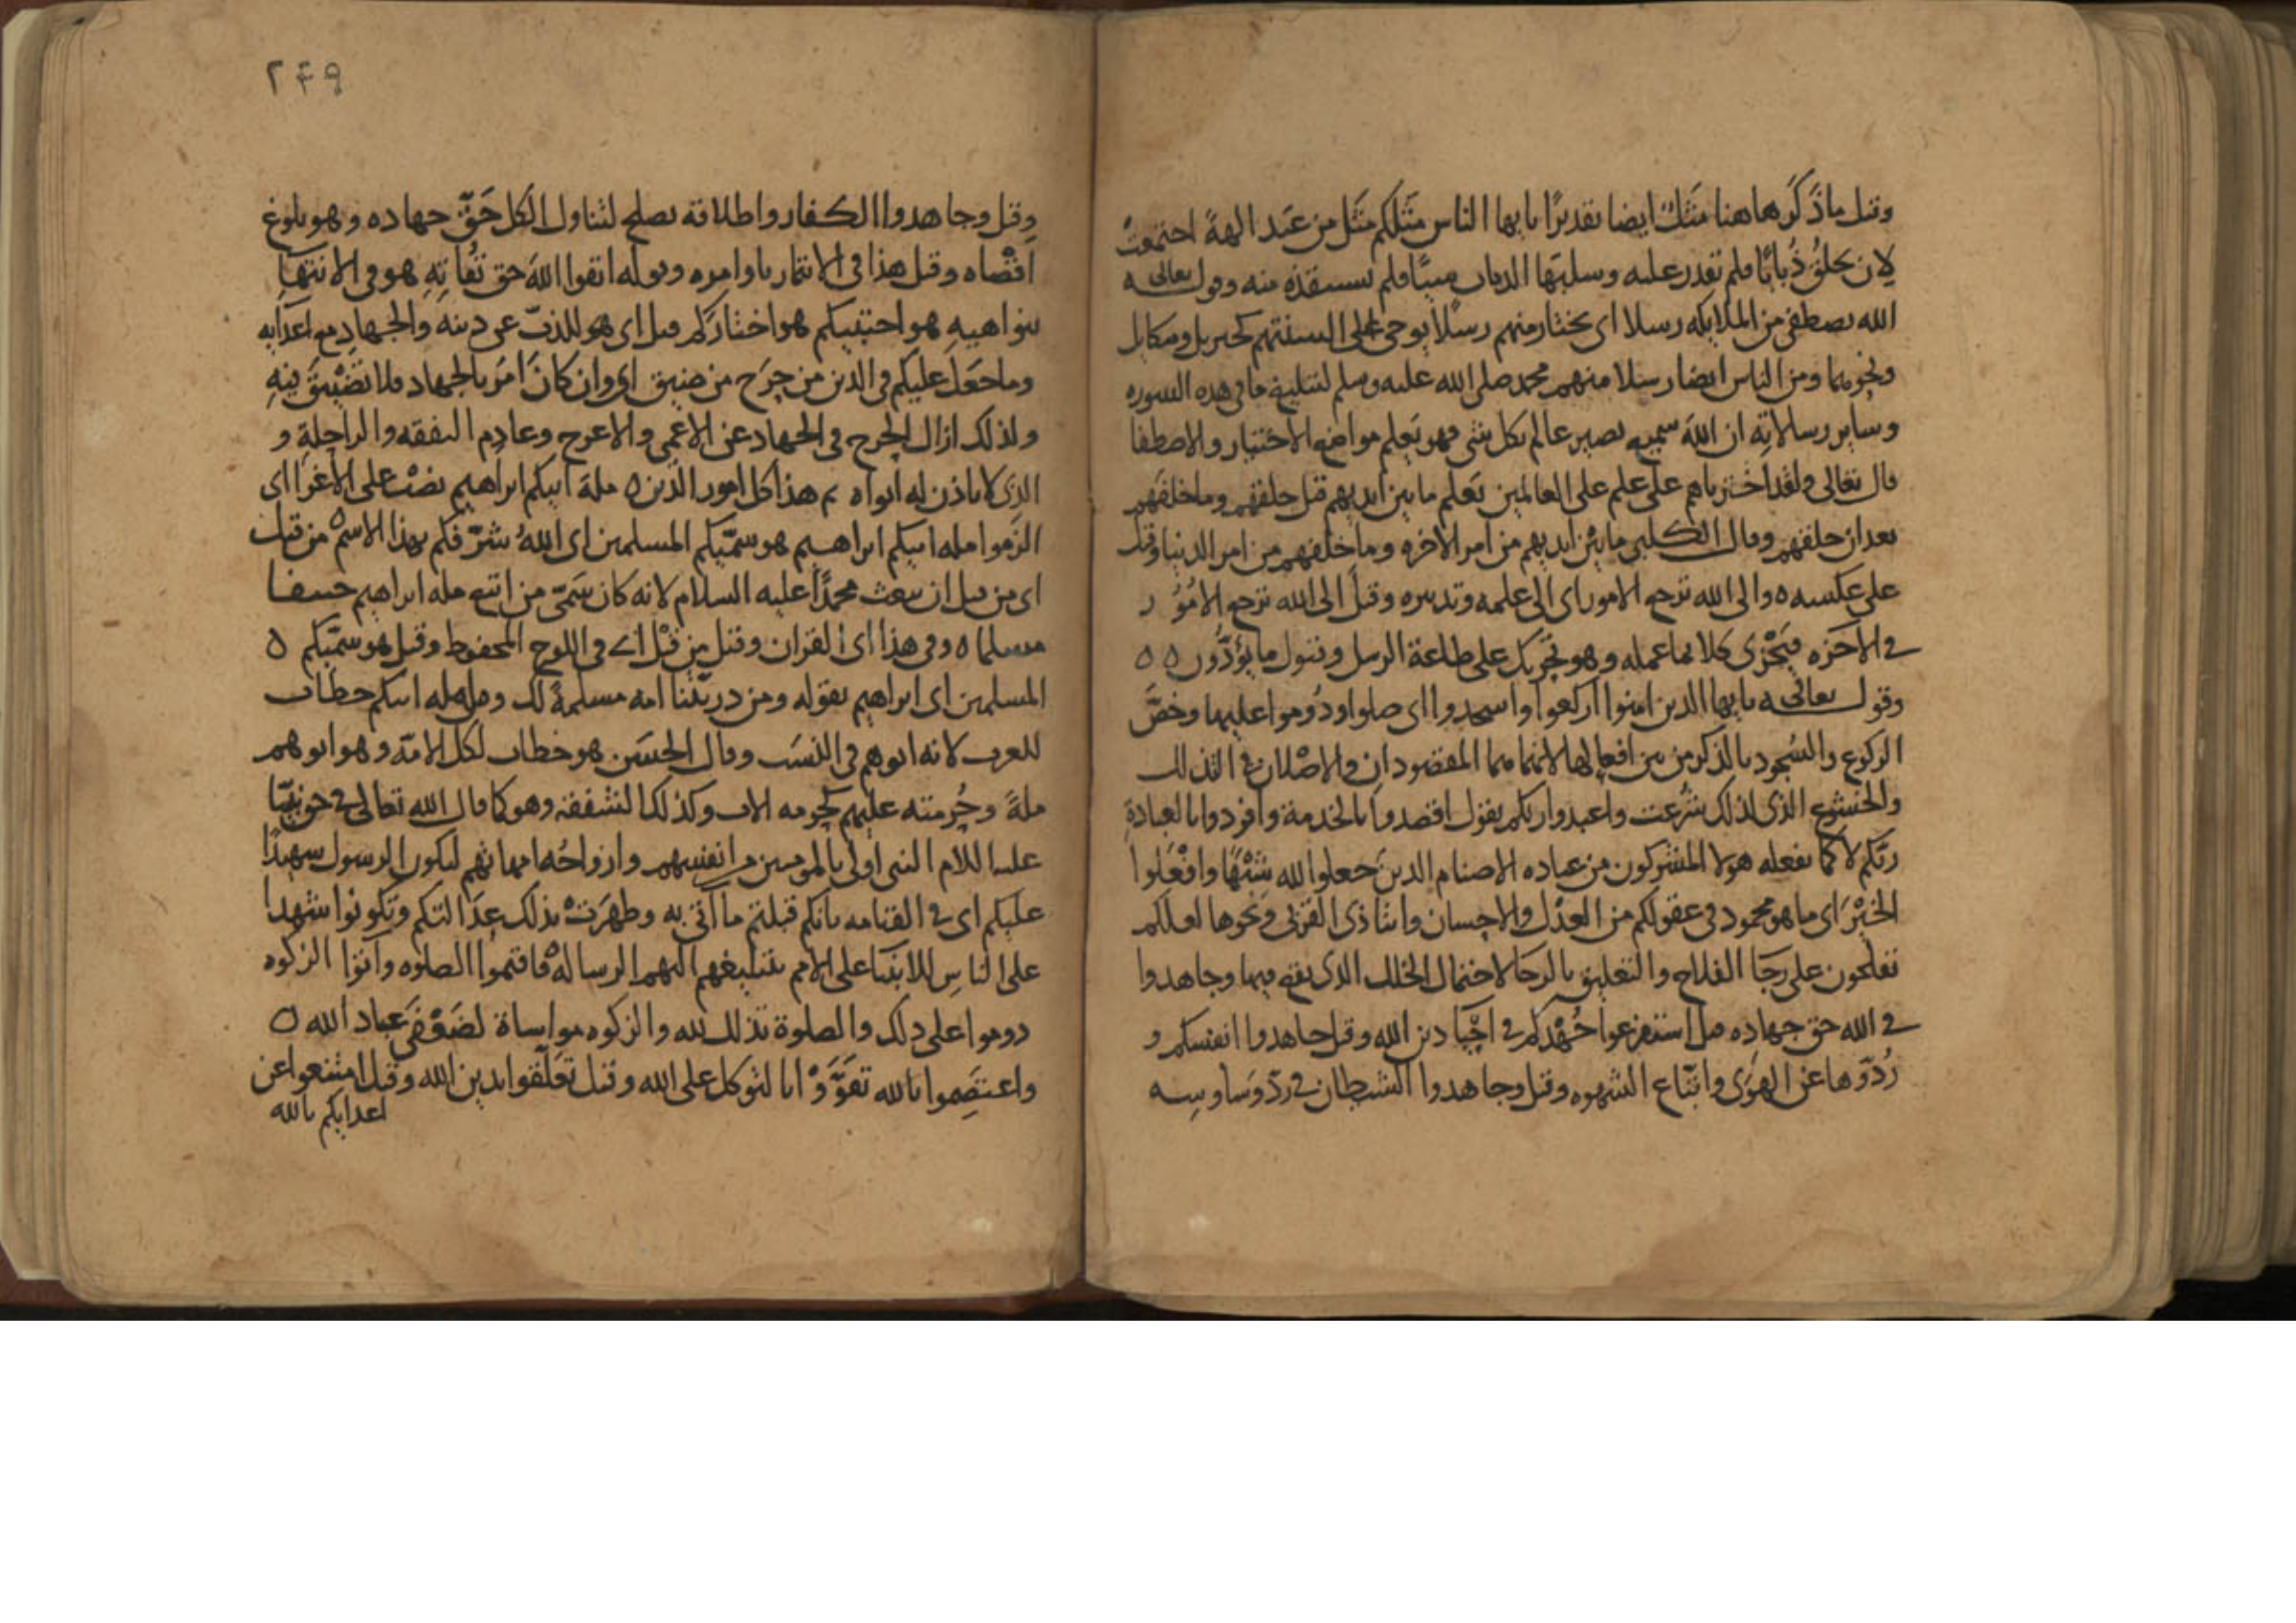 وقيل ما ذكر هاهنا مثل ايضا تقديرًا يا يها الناس مثلكم مثل من عبد الهةً اجتمعت
لان يخلق ذبابًا فلم تقدر عليه وسلبها الذباب شيئًا فلم تستنقذه منه وقوله تعالى
الله يصطفي من الملايكه رسلا اي يختار منهم رسلًا يوحي على السنتهم كجبريل وميكايل
ونحوهما ومن الناس ايضا رسلا منهم محمد صلى الله عليه وسلم لتبليغ ما في هذه السوره
وساير رسالاته ان الله سميع بصير عالم بكل شي فهو يعلم مواضع الاختيار والاصطفا
قال تعالى ولقد اخترناهم على علم على العالمين يعلم ما بين ايديهم قبل خلقهم وما خلفهم
بعد ان خلقهم وقال الكلبي ما بين ايديهم من امر الاخره وما خلفهم من امر الدنيا وقيل
على عكسه ه والى الله ترجع الامور اي الى علمه وتدبيره وقيل الى الله ترجع الامُوُ ر
في الاخره فيجزي كلا بما عمله وهو تحريك على طاعة الرسل وقبول ما يؤدّون ه ه
وقوله تعالى يا يها الذين امنوا اركعوا واسجدوا اي صلوا ودُوموا عليها وخصّ
الركوع والسُجود بالذكر من بين افعالها لانهما هما المقصودان والاصْلان في التذلل
والخشوع الذي لذلك شُرعت واعبدوا ربكم يقول اقصدوا بالخدمة وافردوا بالعبادة
ربّكم لا كما يفعله هولا المشركون من عباده الاصنام الذين جعلوا لله شبْهًا وافْعَلوا
الخَيْرَ اي ما هو محمود في عقولكم من العدْل والاحسان وايتا ذي القربى ونحوها لعلكم
تفلحون على رجَا الفلاح والتعليق بالرجا لاحتمال الخلل الذي يقع فيها وجاهدوا
في الله حق جهاده قيل استفرغوا جُهْدكم في احْيَا دين الله وقيل جاهدوا انفسكم و
رُدّوها عن الهوَى واتّباع الشهوه وقيل وجاهدوا الشيطان في ردّ وَساوسِه
٢٤٩
وقيل وجاهدوا الكفار واطلاقه يصلح لتناول الكل حَقّ جهاده وهو بلوغ
اقْصاه وقيل هذا في الايتمار باوامره وقوله اتقوا الله حق تُقاتِهِ هو في الانتها
بنواهيهِ هو اجتبيكم هو اختاركم قيل اي هو للذبّ عن دينه والجهاد مع اعدايه
وما جَعَل عليكم في الدين من حَرَج من ضيق اي وان كان امرَ بالجهاد فلا تضْييقَ فيهِ
ولذلك ازال الحرج في الجهاد عن الاعمى والاعرج وعادِم النفقه والراحلةِ و
الذي لا ياذن له ابواه ثم هذا كل امور الدين ه ملة ابيكم ابراهيم نصْبٌ على الاغرا اي
الزَموا مله ابيكم ابراهيم هو سمّيكم المسلمين اي اللهُ شرّفكم بهذا الاسْم من قبل
اي من قبل ان يبعث محمدًا عليه السلام لانه كان سَمّى من اتبع مله ابراهيم حنيفا
مسلما ه وفي هذا اي القران وقيل من قبْل اي في اللوح المحفوظ وقيل هو سمّيكم ه
المسلمين اي ابراهيم بقوله ومن ذريّتنا امه مسلمةً لك وقوله مله ابيكم خطاب
للعرب لانه ابوهم في النسَب وقال الحسَن هو خطاب لكل الامّه وهو ابوهم
ملةً وحُرمته عليهم كحرمه الاب وكذلك الشفقه وهو كما قال الله تعالى في حق نبيّنا
عليه اللام النبي اولى بالمومنين من انفسهم وازواجُه امهاتهم ليكون الرسول شهيدًا
عليكم اي في القيامه بانكم قبلتم ما اتى به وظهرَتْ بذلك عدَالتكم وتكونوا شهدا
على الناسِ للانبيَا على الامم بتبليغهم اليهم الرسالهْ فاقيموا الصلوه وآتوا الزكوه
دوموا على ذلك والصلوة تذلل لله والزكوه مواساة لضَعْفَى عباد الله ه
واعتصِموا بالله تقوّوْا بالتوكل على الله وقيل تعلّقوا بدين الله وقيل امتنعوا عن
اعدايكم بالله